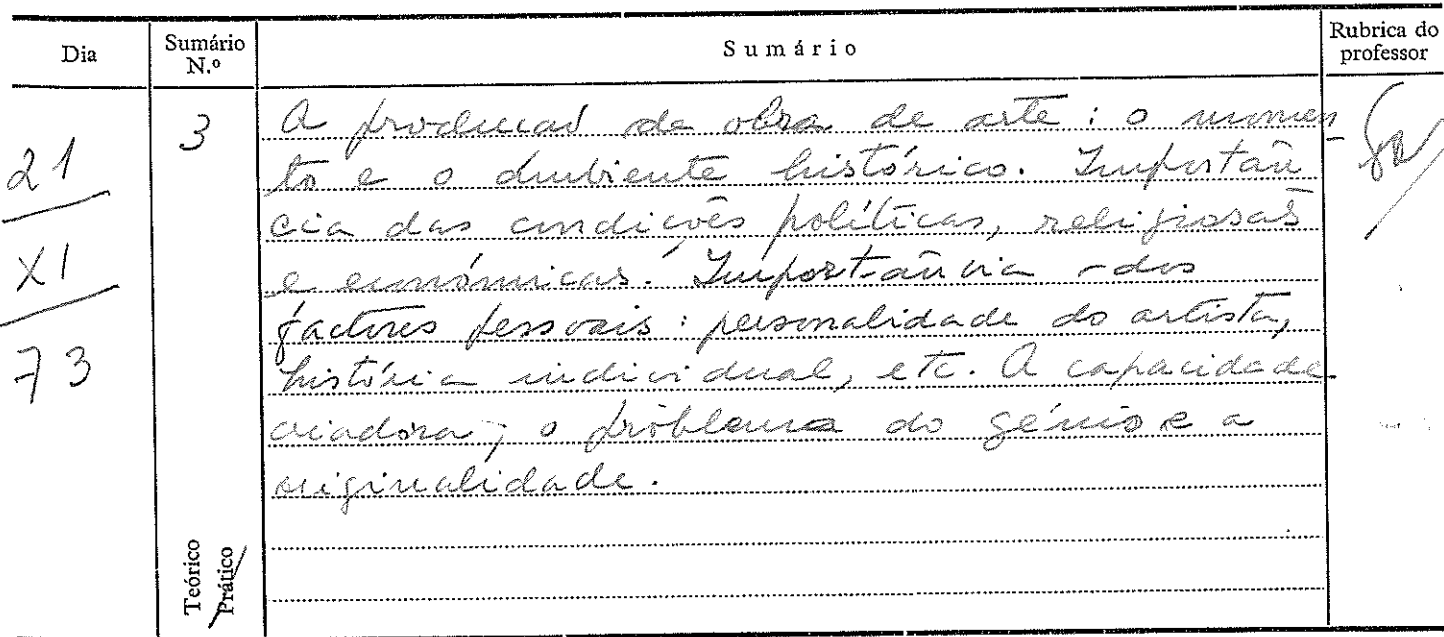 Dia
Sumário N.º
Sumário
Rubrica do professor
21
XI
73
3
A produção da obra de arte: o momen-
to e o ambiente histórico. Importân-
cia das condições políticas, religiosas
e económicas. Importância dos
factores pessoais: personalidade do artista,
história individual, etc. A capacidade
criadora; o problema do génio e a
originalidade.
Teórico
Prático